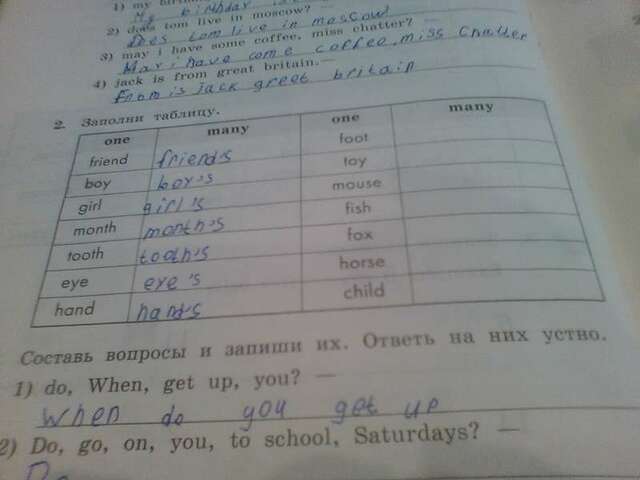 1) my birthday
My birthday is
2) does tom live in moscow? —
Does tom live in moscow
3) may i have some coffee, miss chatter? —
May i have come coffee, miss Chatter
4) jack is from great britain. —
From is jack greet britain
2. Заполни таблицу.
one many one many
friend friend's foot
boy boy's toy
girl girl's mouse
month month's fish
tooth tooth's fox
eye eye's horse
hand hand's child
Составь вопросы и запиши их. Ответь на них устно.
1) do, When, get up, you? —
When do you get up
2) Do, go, on, you, to school, Saturdays? —